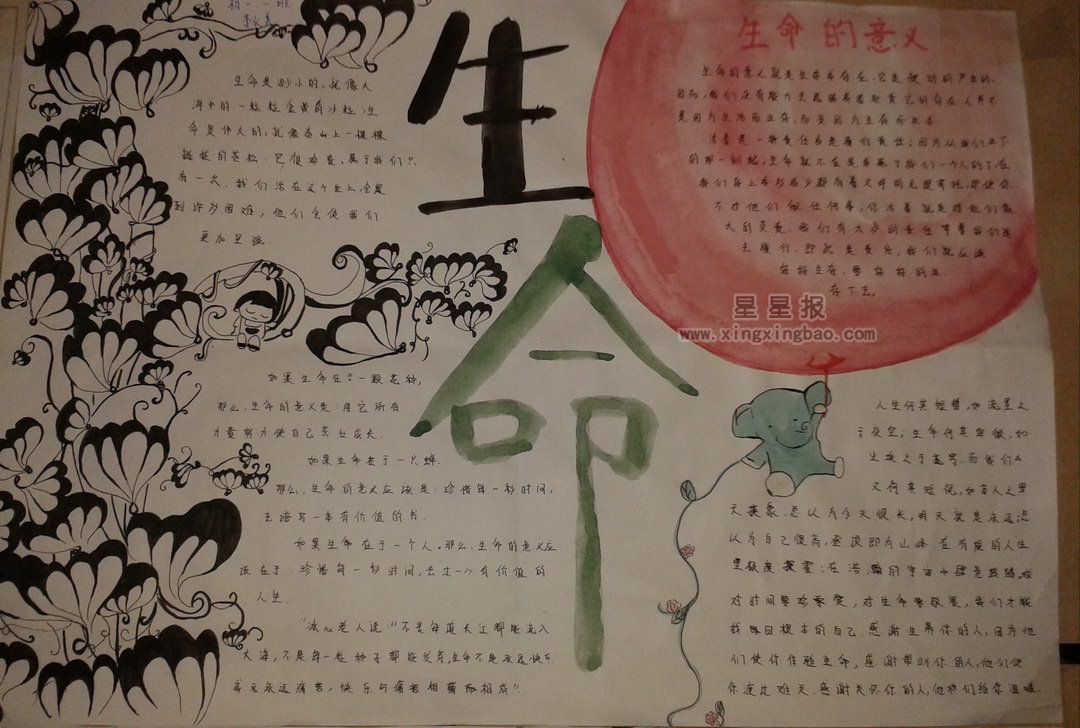 初一.一班
生命
生命是渺小的,就像大
海中的一粒粒金黄的沙粒;生
命是伟大的,就像泰山上一棵棵
挺拔的苍松.它很珍贵,属于我们只
有一次.我们活在这个世上,会遇
到许多困难,他们会使我们
更加坚强.
如果生命在于一颗花种,
那么,生命的意义是:用它所有
力量努力使自己茁壮成长.
如果生命在于一只蝉.
那么,生命的意义应该是:珍惜每一秒时间,
去谱写一本有价值的书.
如果生命在于一个人,那么,生命的意义应
该在于:珍惜每一秒时间,去过一个有价值的
人生.
"冰心老人说:"不是每道大江都能流入
大海,不是每一粒种子都能发育,生命不是永远快乐
永远痛苦,快乐与痛苦相辅而相成"
生命的意义
生命的意义就是生命的存在.它是
我们没有能力去
是因为生活而生存,而是因为生存而生活
活着是一种责任
的那一刻起,生命就不在是单属于我们一个人的了.在
我们身上有形无形
不对他们做任何事,你活着就是对他们最
大的安慰.我们有太多的责任等着我们
去履行.既然是责任,我们就应该
好好生存.要好好的生
存下去。
星星报
www.xingxingbao.com
人生何其短暂,如流星之
于夜空;生命何其卑微,如
尘埃之于苍穹.而我们
又何其短视,如盲人之
天真以为今天很长,明天就是永远
以为自己很高,登顶即为山峰.在有度的人生
里极度挥霍;在浩瀚的宇宙中肆意
对时间要珍爱,对生命要敬畏,我们才能
找回根本的自己.感谢生养你的人,因为他
们使你体验生命,感谢帮助你的人,他们使
你渡过难关.感谢关怀你的人,他们给你温暖.